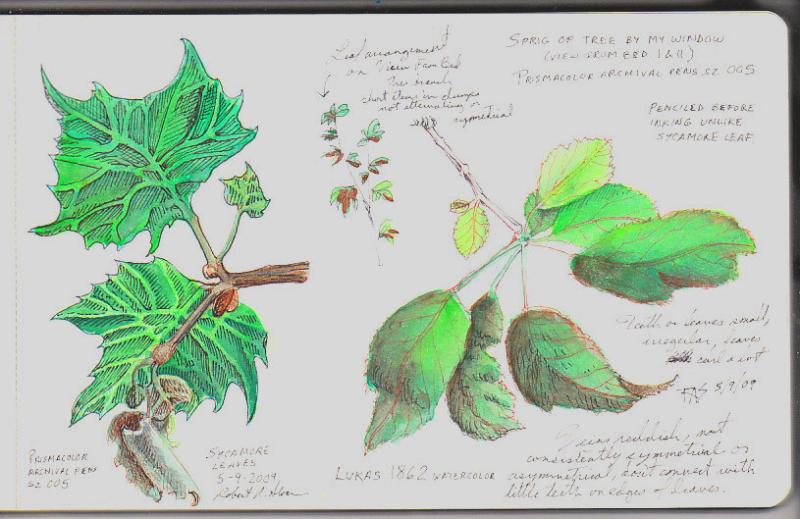 Leaf arrangement
on View From Bed
Tree branch
short stems in clumps
not alternating or
symmetrical
SPRIG OF TREE BY MY WINDOW
(VIEW FROM BED I & II)
PRISMACOLOR ARCHIVAL PENS SZ 005
PENCILED BEFORE
INKING UNLIKE
SYCAMORE LEAF.
Teeth on leaves small,
irregular, leaves
curl a lot
RAS 5/9/09
Veins reddish, not
consistently symmetrical or
asymmetrical, don't connect with
little teeth on edges of leaves.
PRISMACOLOR
ARCHIVAL PENS
SZ 005
SYCAMORE
LEAVES
5-9-2009
Robert A.
LUKAS 1862 WATERCOLOR